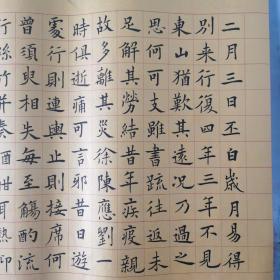 二月三日丕白歲月易得
別來行復四年三年不見
東山猶歎其遠況乃過之
思何可支雖書疏往返未
足解其勞結昔年疾疫親
故多離其災徐陳應劉一
時俱逝痛可言邪昔日遊
處行則連輿止則接席何
曾須臾相失每至觴酌流
行絲竹并奏酒酣耳熱仰